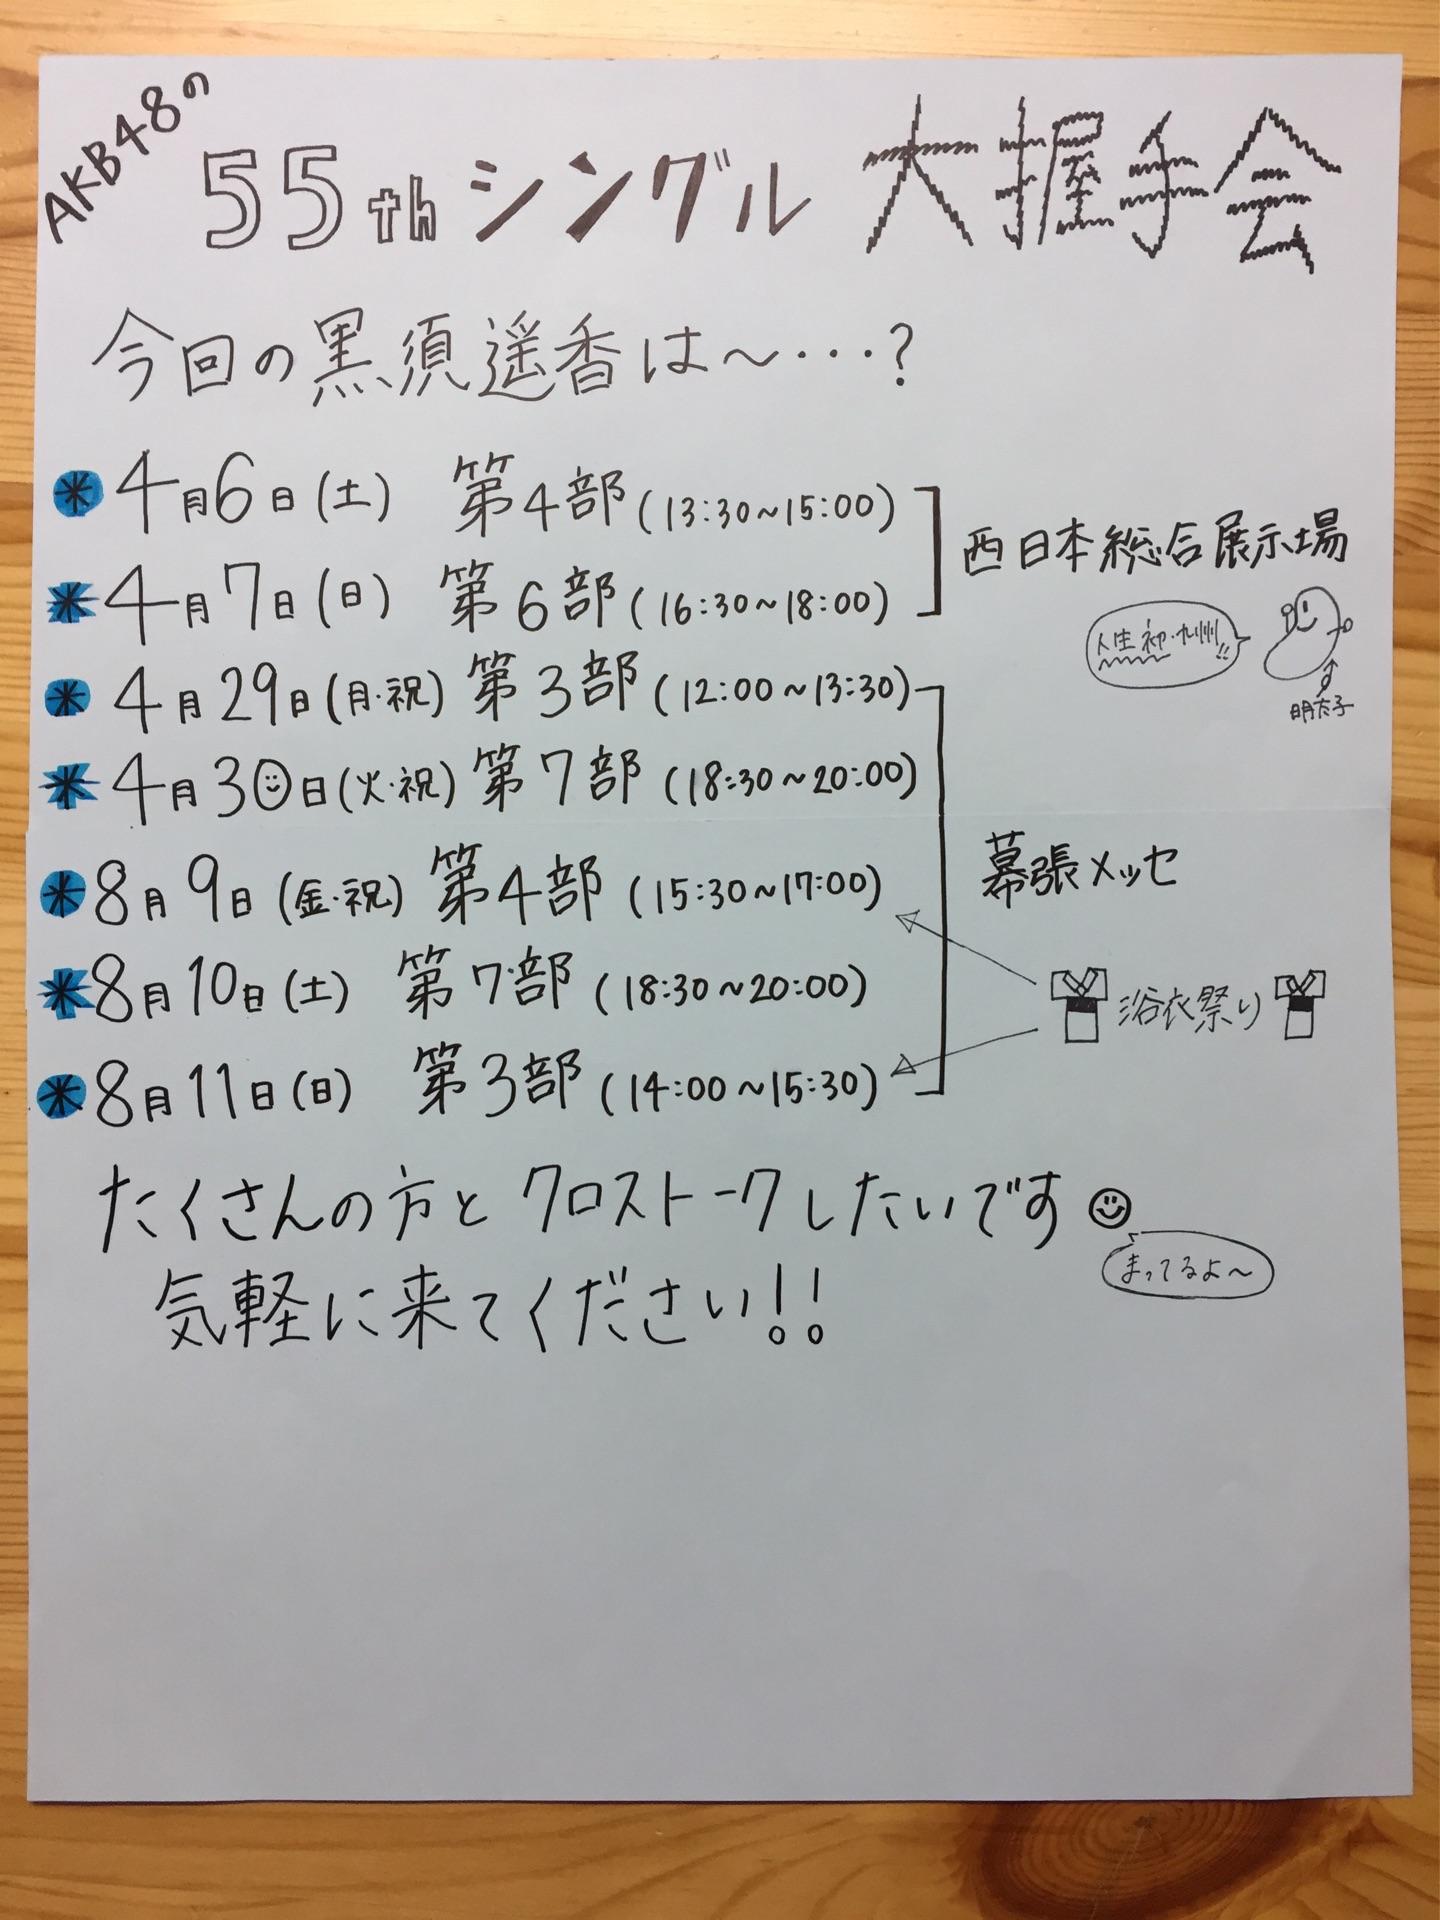 AKB48の
55thシングル 大握手会
今回の黒須遥香は〜・・・?
4月6日(土) 第4部(13:30~15:00)
4月7日(日) 第6部(16:30~18:00)
西日本総合展示場
人生初・九州!!
明太子
4月29日(月・祝) 第3部(12:00~13:30)
4月30日(火・祝) 第7部(18:30~20:00)
8月9日(金・祝) 第4部(15:30~17:00)
幕張メッセ
8月10日(土) 第7部(18:30~20:00)
浴衣祭り
8月11日(日) 第3部(14:00~15:30)
たくさんの方とクロストークしたいです
まってるよ〜
気軽に来てください!!